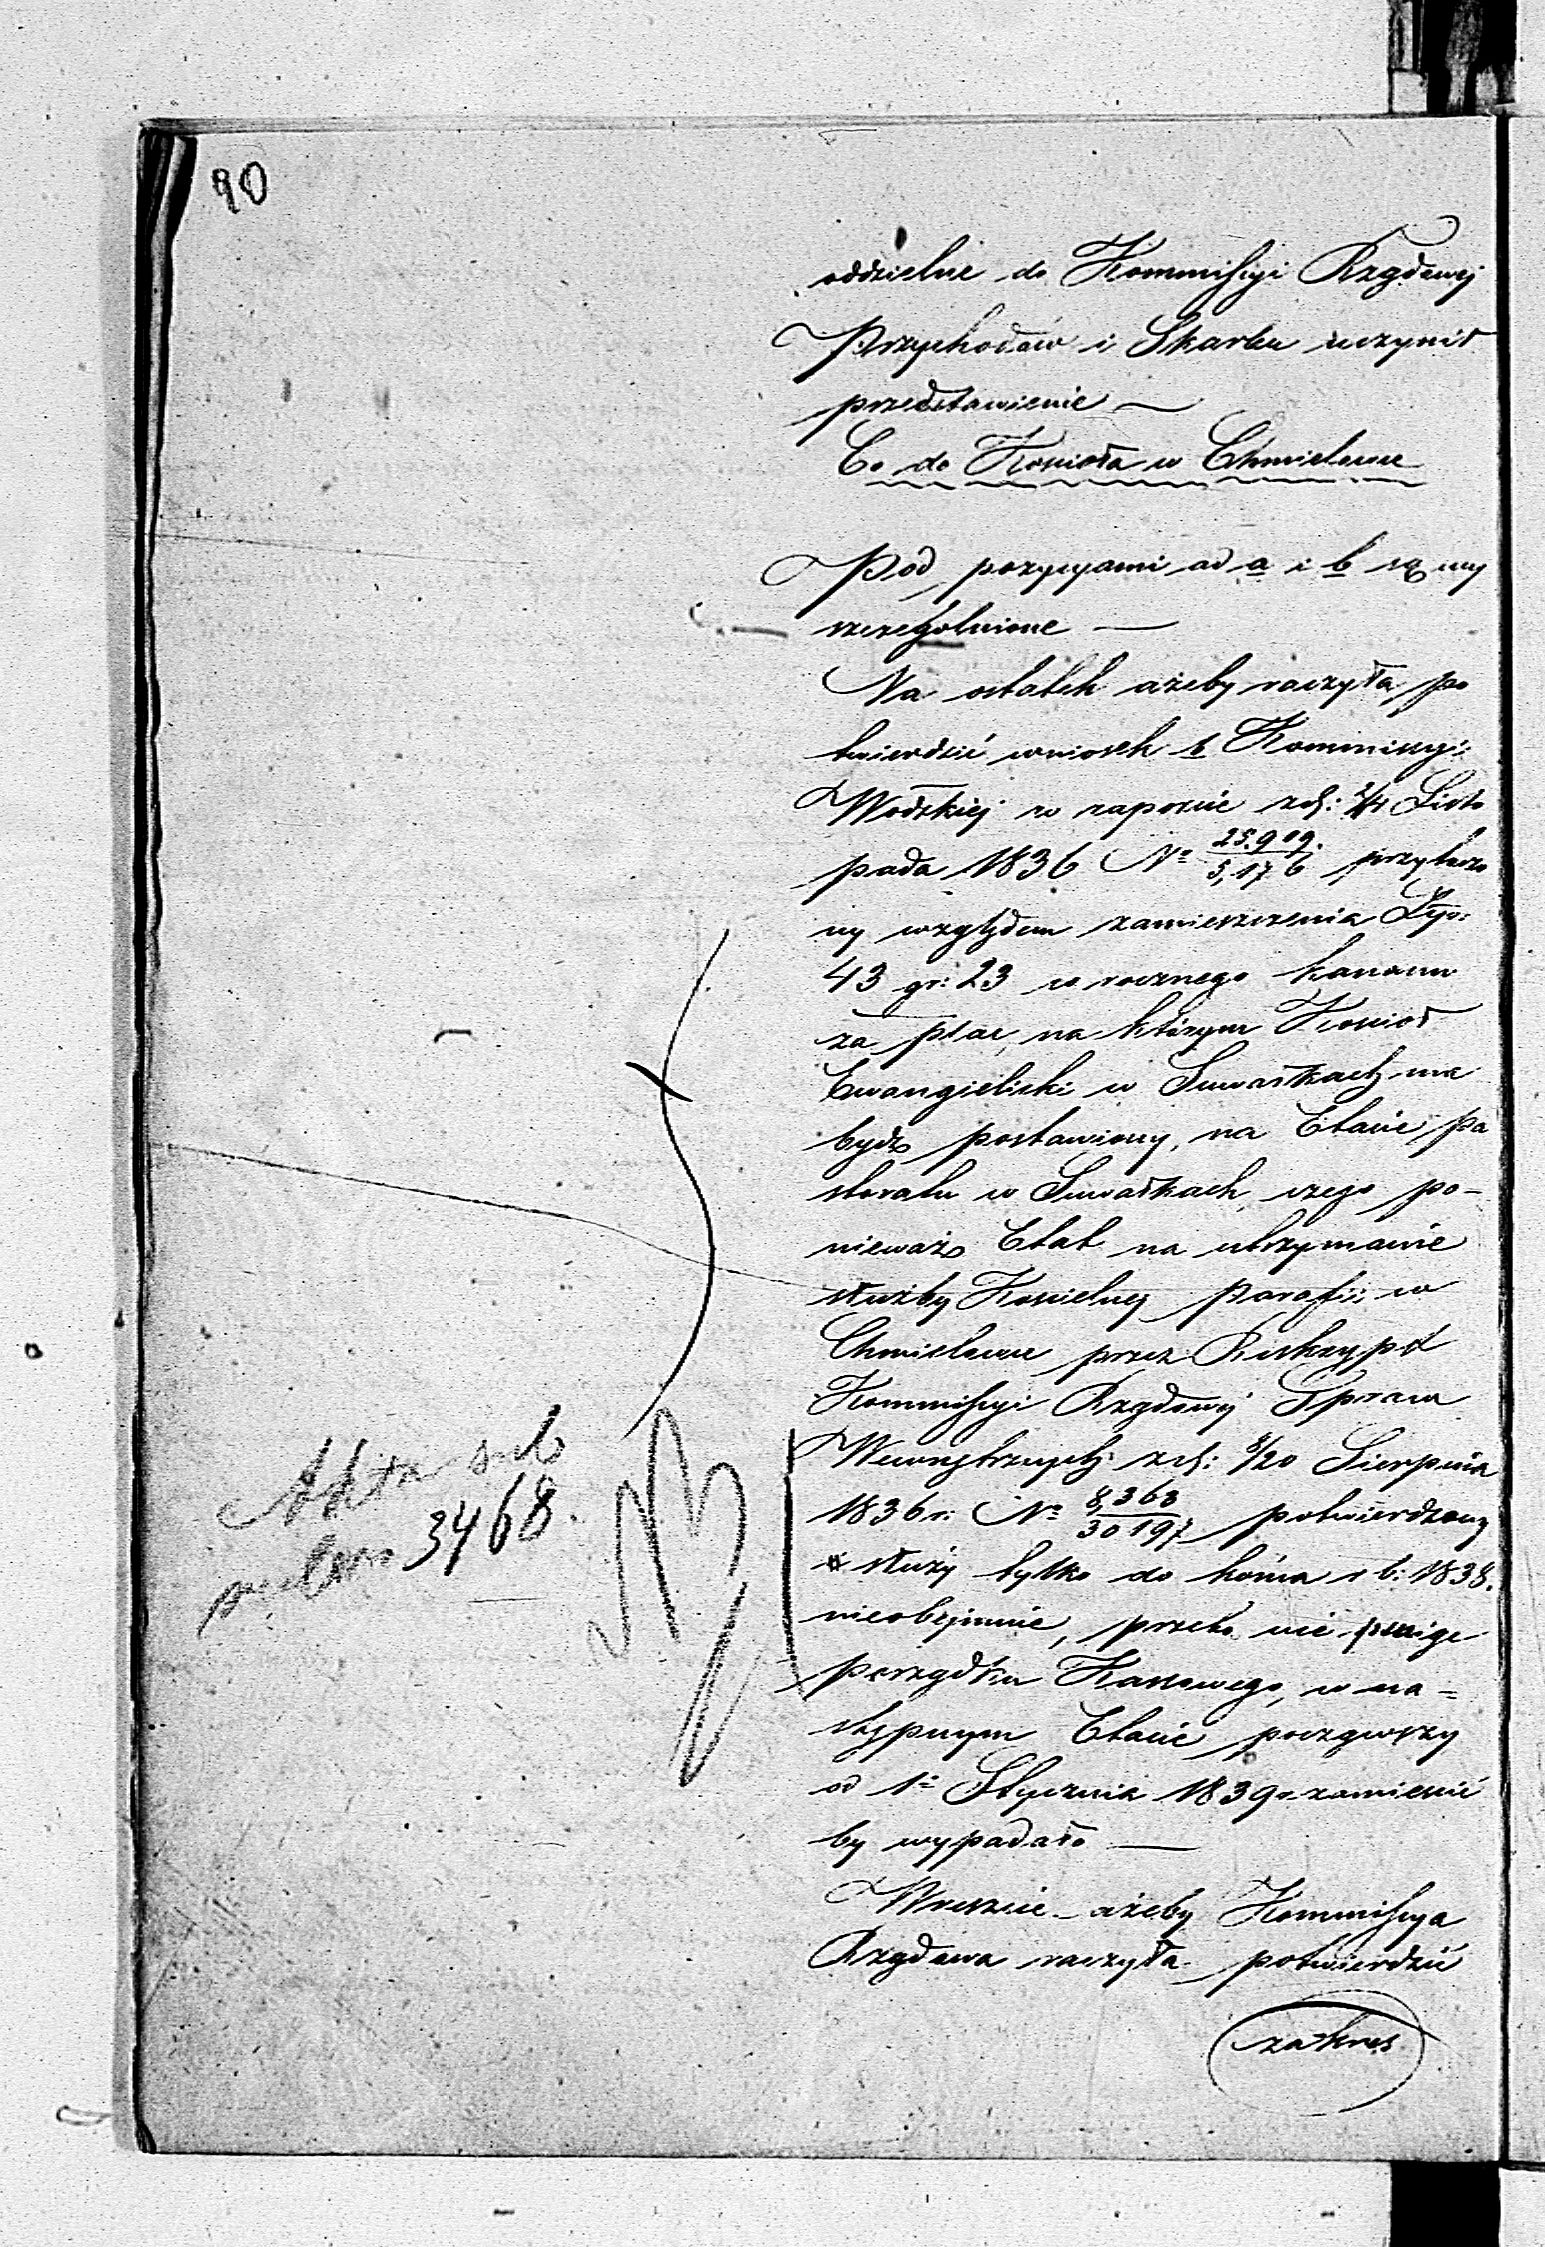 90
oddzielnie do Kommissyi Rządowej
Przychodów i Skarbu uczynił
przedstawienie —
Co do Kościoła w Chmielewie
Pod pozycyami ad a i b są wy
szczególnione —
Na ostatek ażeby raczyła po
twierdzić wniosek b Kommissyi
Wodzkiej w raporcie z d: 2/14 Listo
pada 1836 No 25,909/5,176 przytoczo
ny względem zamieszczenia Złp:
43 gr: 23 rocznego kanonu
za plac na którym Kościoł
Ewangielicki w Suwałkach ma
bydź postawiony, na Etacie pa
storatu w Suwałkach czego po-
nieważ Etat na utrzymanie
służby Kościelney Parafii w
Chmielewie przez Reskrypt
Kommissyi Rządowej Spraw
Wewnętrznych z d: 8/20 Sierpnia
1836 r: No 8,363/30197 potwierdzony
służy tylko do końca r b: 1838.
nieobejmuie, przeto nie
porządku Kassowego, w na=
stępnym Etacie począwszy
od 1o Stycznia 1839 r zamieścić
by wypadało —
Wreszcie ażeby Kommissya
Rządowa raczyła potwierdzić
zakres
Akta sub
3468.